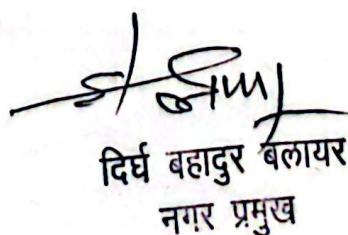 दिर्घ बहादुर बलायर
नगर प्रमुख